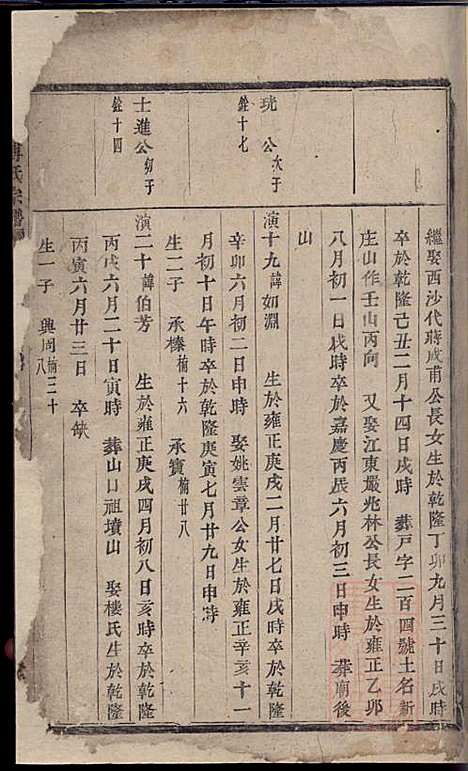 繼娶西沙代蔣成甫公長女生於乾隆丁卯九月三十日戌時
卒於乾隆己丑二月十四日戌時 葬戸字二百四號土名新
庄山作壬山丙向 又娶江東嚴兆林公長女生於雍正乙卯
八月初一日戌時卒於嘉慶丙辰六月初三日申時 葬廟後
山
珖公次子
銓十七
演十九諱如淵 生於雍正庚戌二月廿七日戌時卒於乾隆
辛卯六月初二日申時 娶姚雲章公女生於雍正辛亥十一
月初十日午時卒於乾隆庚寅七月廿九日申時
生二子 承榛楠十六 承寳楠廿八
士進公幼子
銓十四
演二十諱伯芳 生於雍正庚戌四月初八日亥時卒於乾隆
丙戌六月二十日寅時 葬山口祖墳山 娶樓氏生於乾隆
丙寅六月廿三日 卒缺
生一子 興周楠二十八
氏宗譜